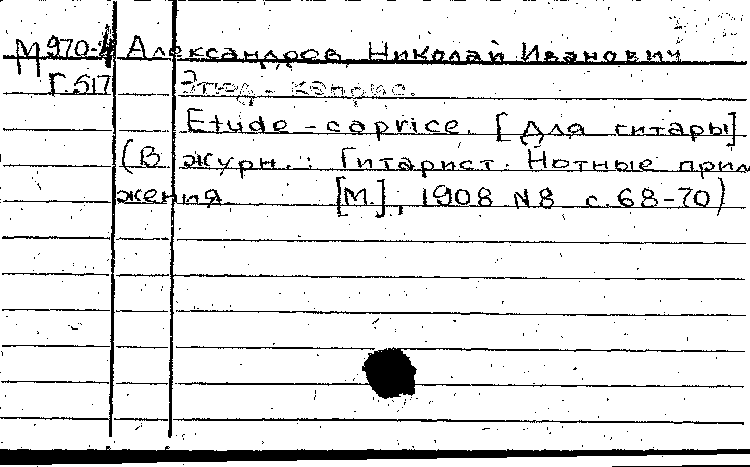 М 970-4 Александров, Николай Иванович
Г.517 Этюд - каприс.
Etude - caprice. [Для гитары]
(В журн.: Гитарист. Нотные прил
жения. [М.], 1908 N8 с. 68-70)